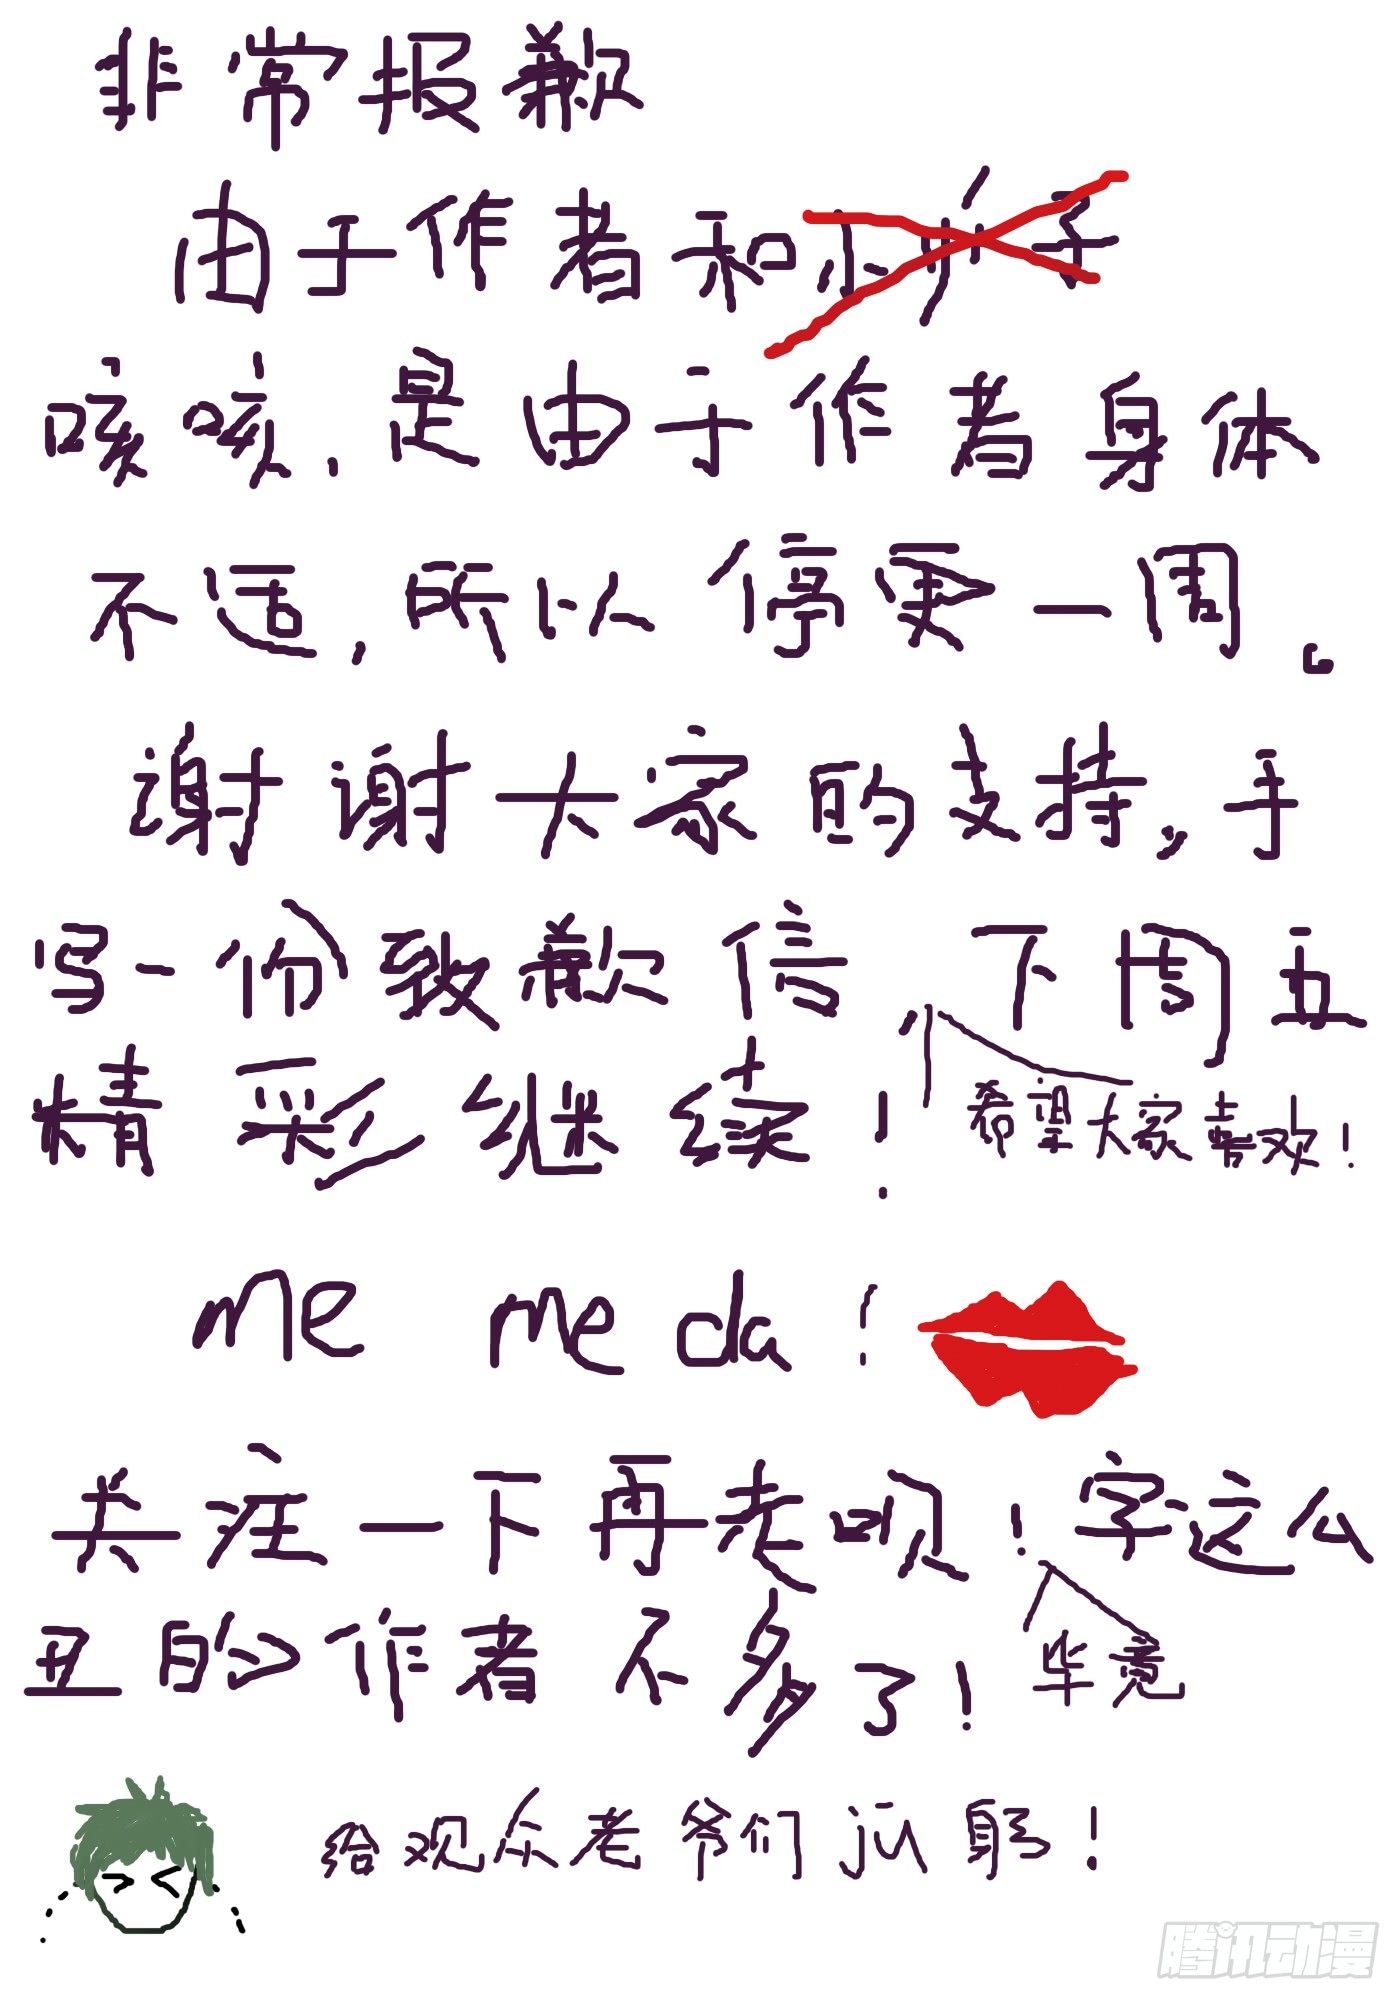 非常报歉
由于作者和小伙子
咳咳，是由于作者身体
不适，所以停更一周。
谢谢大家的支持，手
写一份致歉信，下周五
精彩继续！希望大家喜欢！
me me da！
关注一下再走呗！字这么
丑的作者不多了！毕竟
给观众老爷们鞠躬！
腾讯动漫